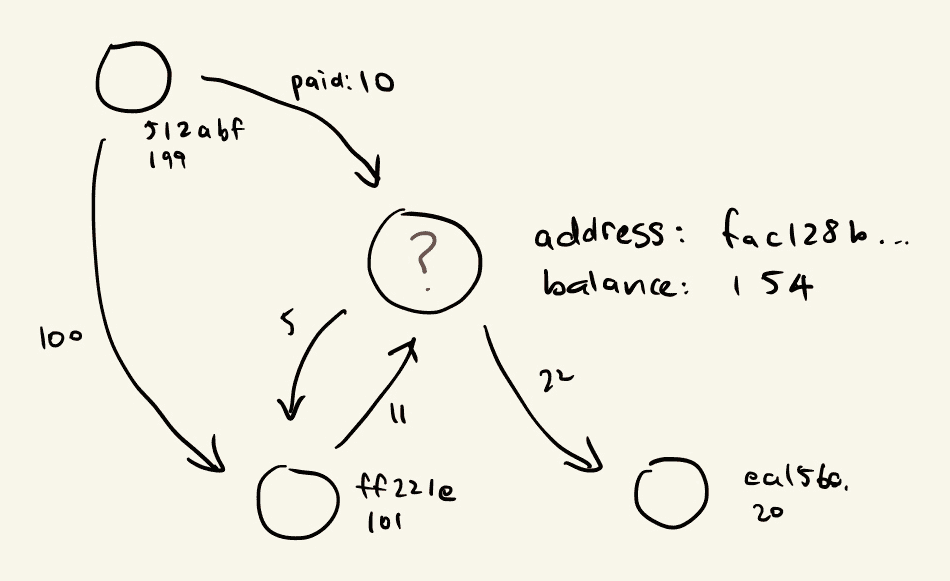 paid:10
512abf
199
?
address: fac128b...
balance: 154
100
5
11
22
ff221e
101
ea156a.
20